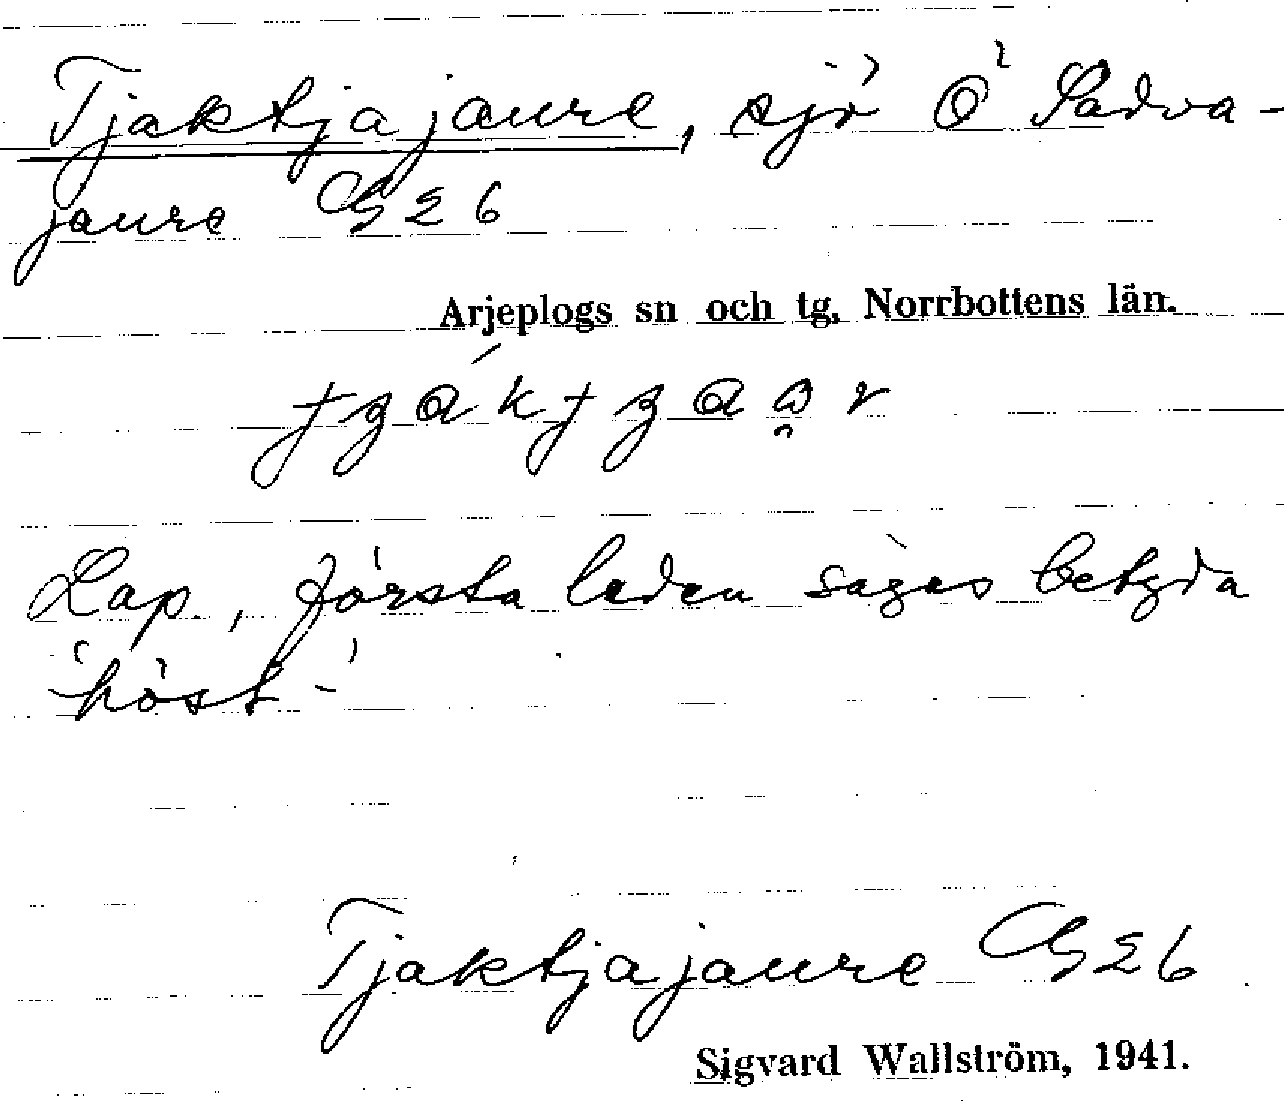 Tjaktjajaure, sjö Ö Sadva-
jaure G26
Arjeplogs sn och tg, Norrbottens län.
Lap, första leden säges betyda
'höst-'
Tjaktjajaure G26
Sigvard Wallström, 1941.